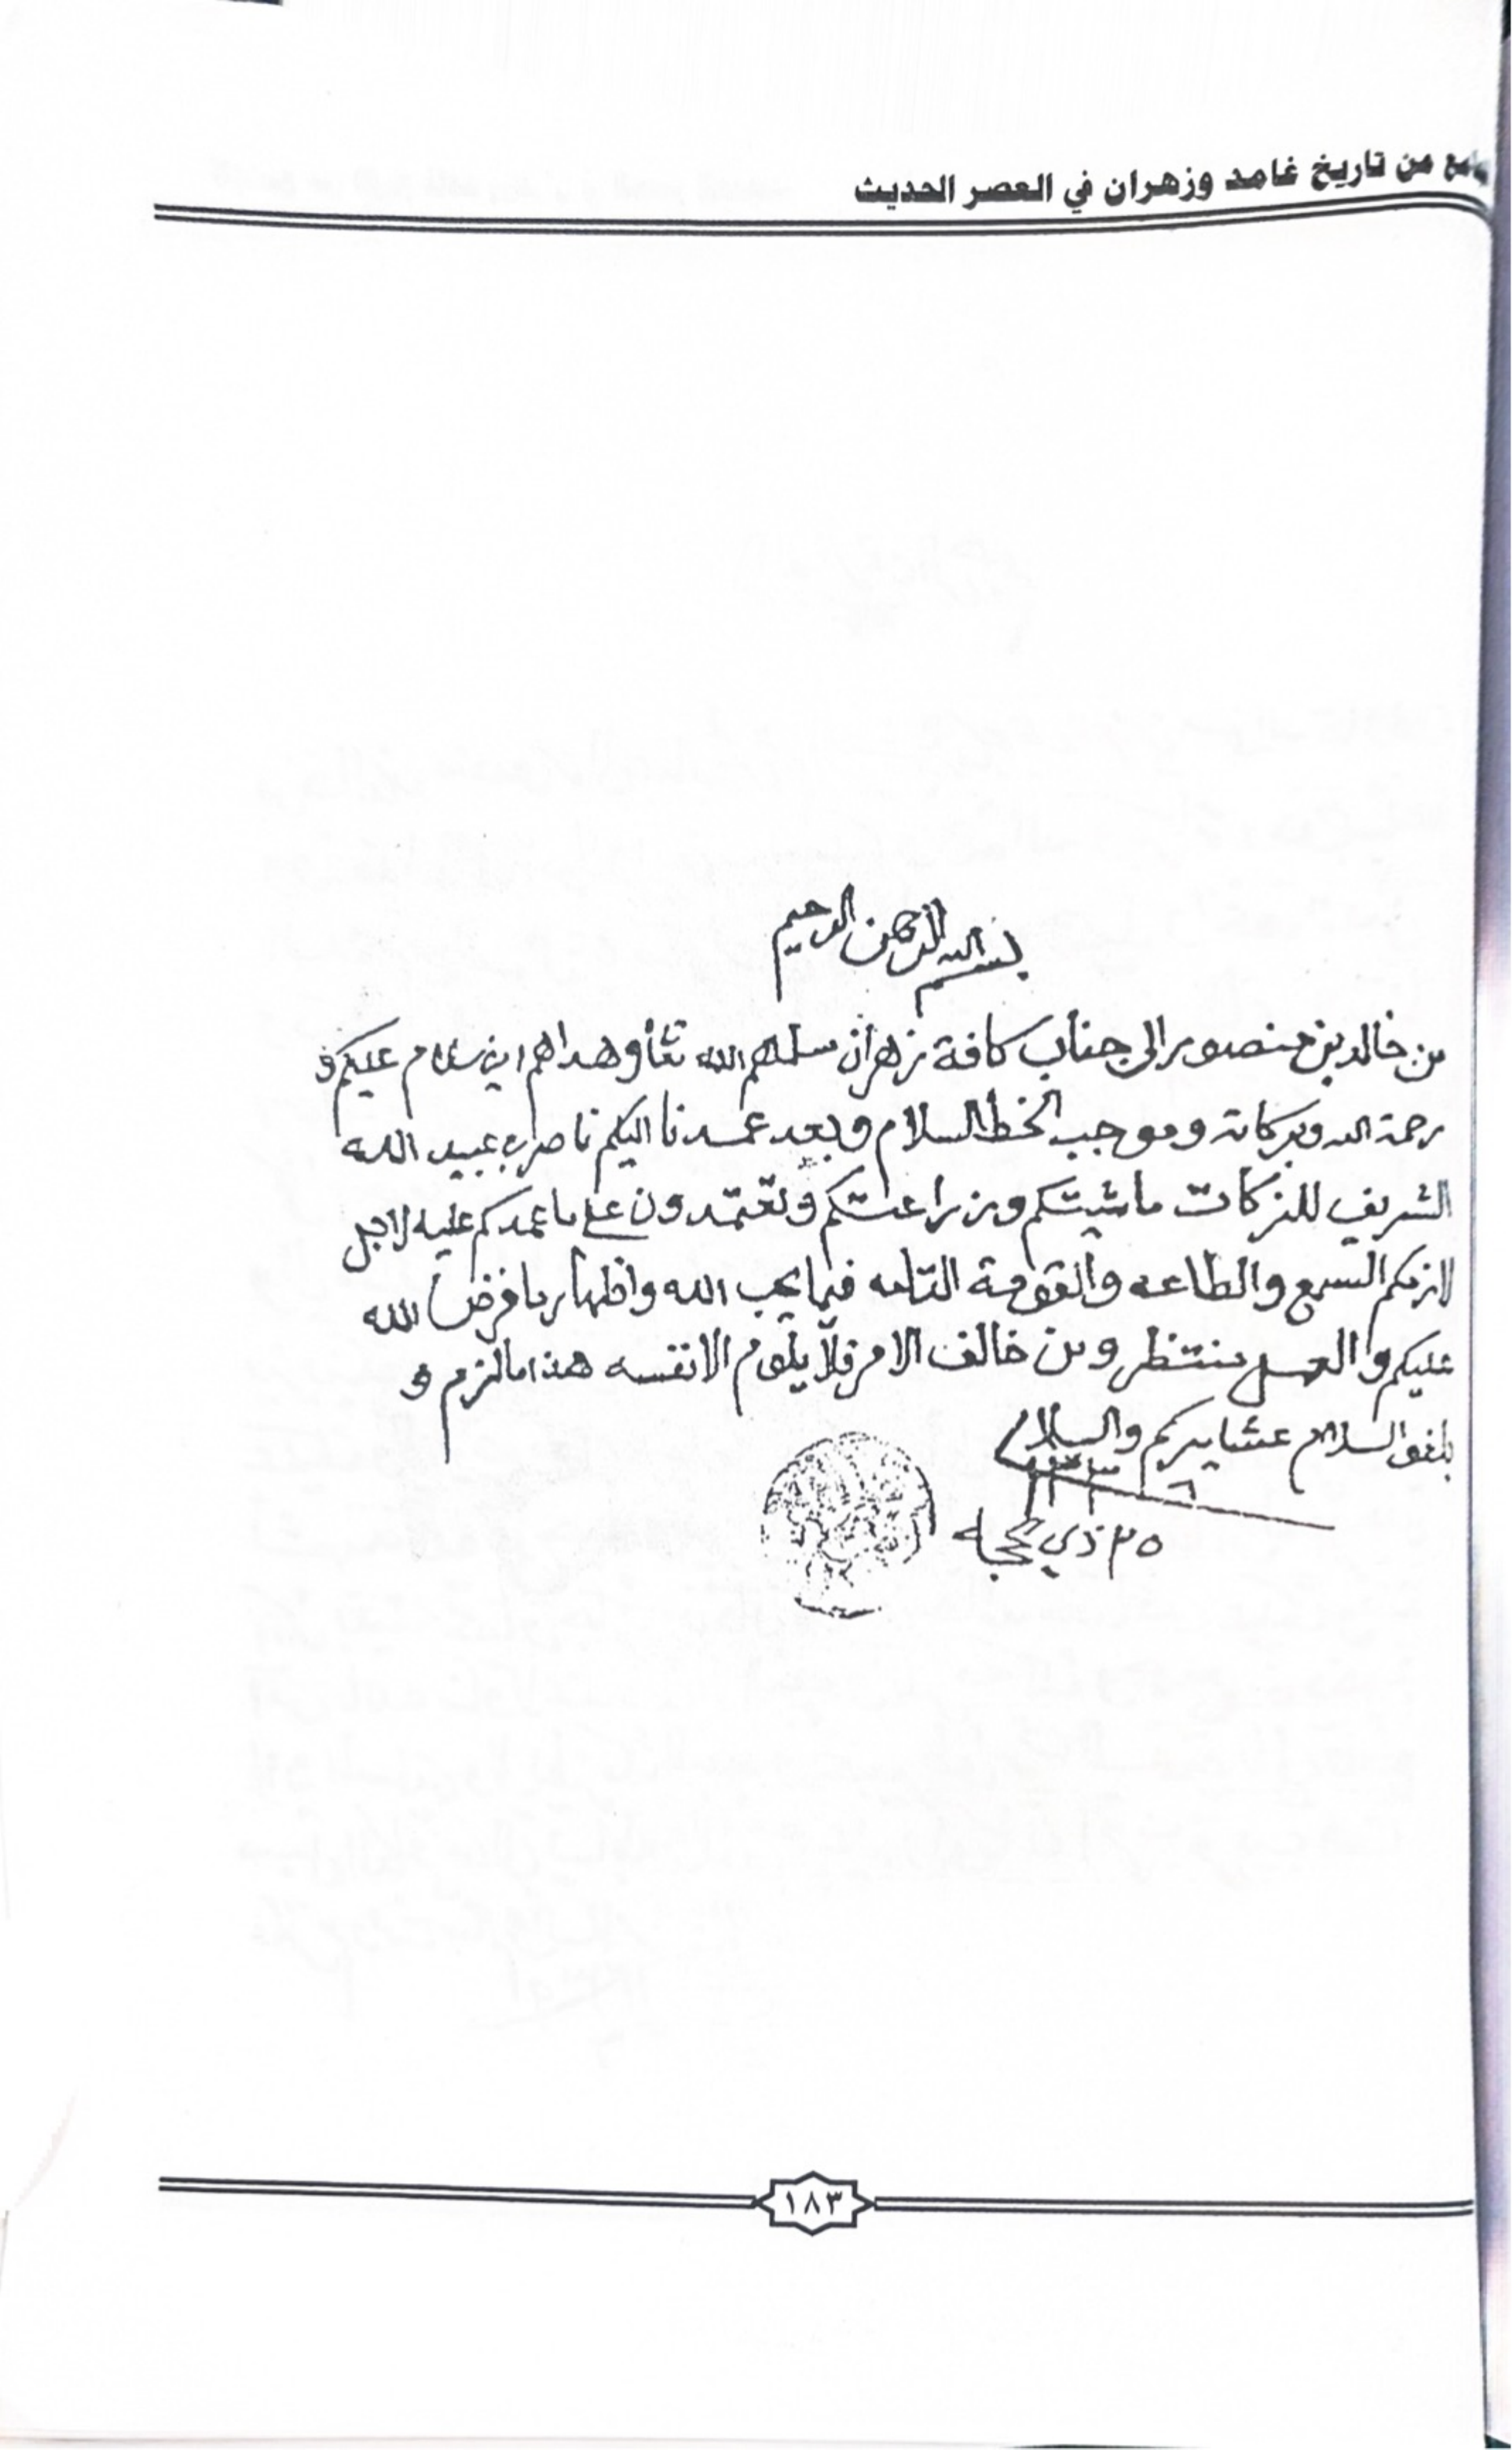 من تاريخ غامد وزهران في العصر الحديث
بسم الله الرحمن الرحيم
من خالد بن منصور الى جناب كافة زهران سلمهم الله تعا وهداهم امين سلام عليكم و
رحمة الله وبركاته وموجب الخط السلام وبعد عمدنا اليكم ناصر بن عبيد الله
الشريف للزكات ماشيتكم وزراعتكم وتعتمدون على ما عمدكم عليه لاجل
لازمكم السمع والطاعه والقومة التامه فيما يحب الله واظهار ما فرض الله
عليكم والعمل منتظر ومن خالف الامر فلا يلوم الا نفسه هذا مالزم و
بلغوا السلام عشايركم والسلام
٢٥ ذي حجه
١٨٣